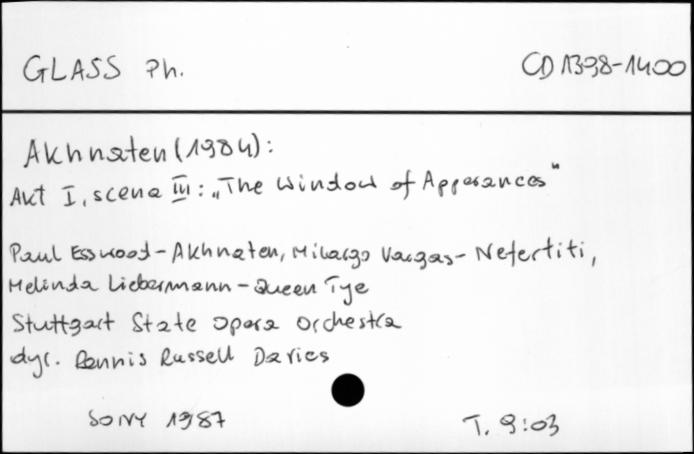 GLASS Ph. CD 1398-1400
Akhnaten (1984):
Akt I, scena III: „The Window of Apperances"
Paul Esswood - Akhnaten, Milargo Vargas - Nefertiti,
Melinda Liebermann - Queen Tye
Stuttgart State Opera Orchestra
dyr. Dennis Russell Davies
SONY 1987 T. 9:03